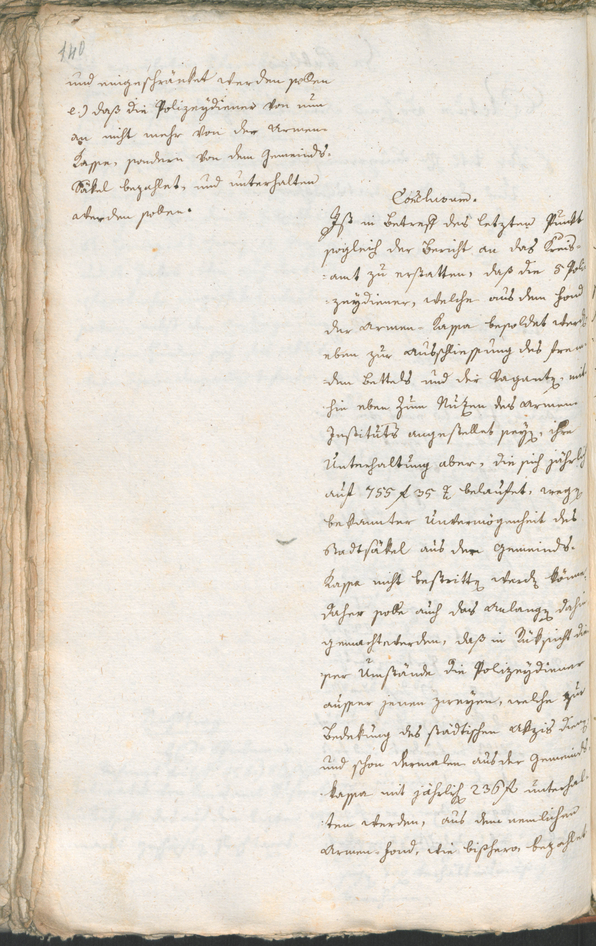 140
und eingeschränket werden sollen
e.) daß die Polizeydiener von nun
an nicht mehr von der Armen-
Kassa, sondern von dem Gemeinds-
Säkel bezahlet, und unterhalten
werden sollen.
Conclusum.
Ist in Betreff des letzten Punkt
sogleich der Bericht an das Kreis-
amt zu erstatten, daß die 5 Poli-
zeydiener, welche aus dem Fond
der Armen-Kassa besoldet werd
eben zur Ausschliessung des frem-
den Bettels und der Vagantn, mit-
hin eben zum Nutzen des Armen-
Instituts angestellet seyn, ihre
Unterhaltung aber, die sich jährlich
auf 755 f 35 x belaufet, wegn
bekannter Unvermögenheit des
Stadtsäkel aus der Gemeinds-
Kassa nicht bestrittn werdn könne,
daher solle auch das Anlangn dahin
gemacht werden, daß in Rüksicht die
ser Umstände die Polizeydiener
ausser jenen zweyen, welche zur
Bedekung des städtischen Akzis dienn
und schon dermalen aus der Gemeinds-
kassa mit jährlich 236 f unterhal-
ten werden, aus dem nemlichen
Armen-Fond, wie bishero bezahlet